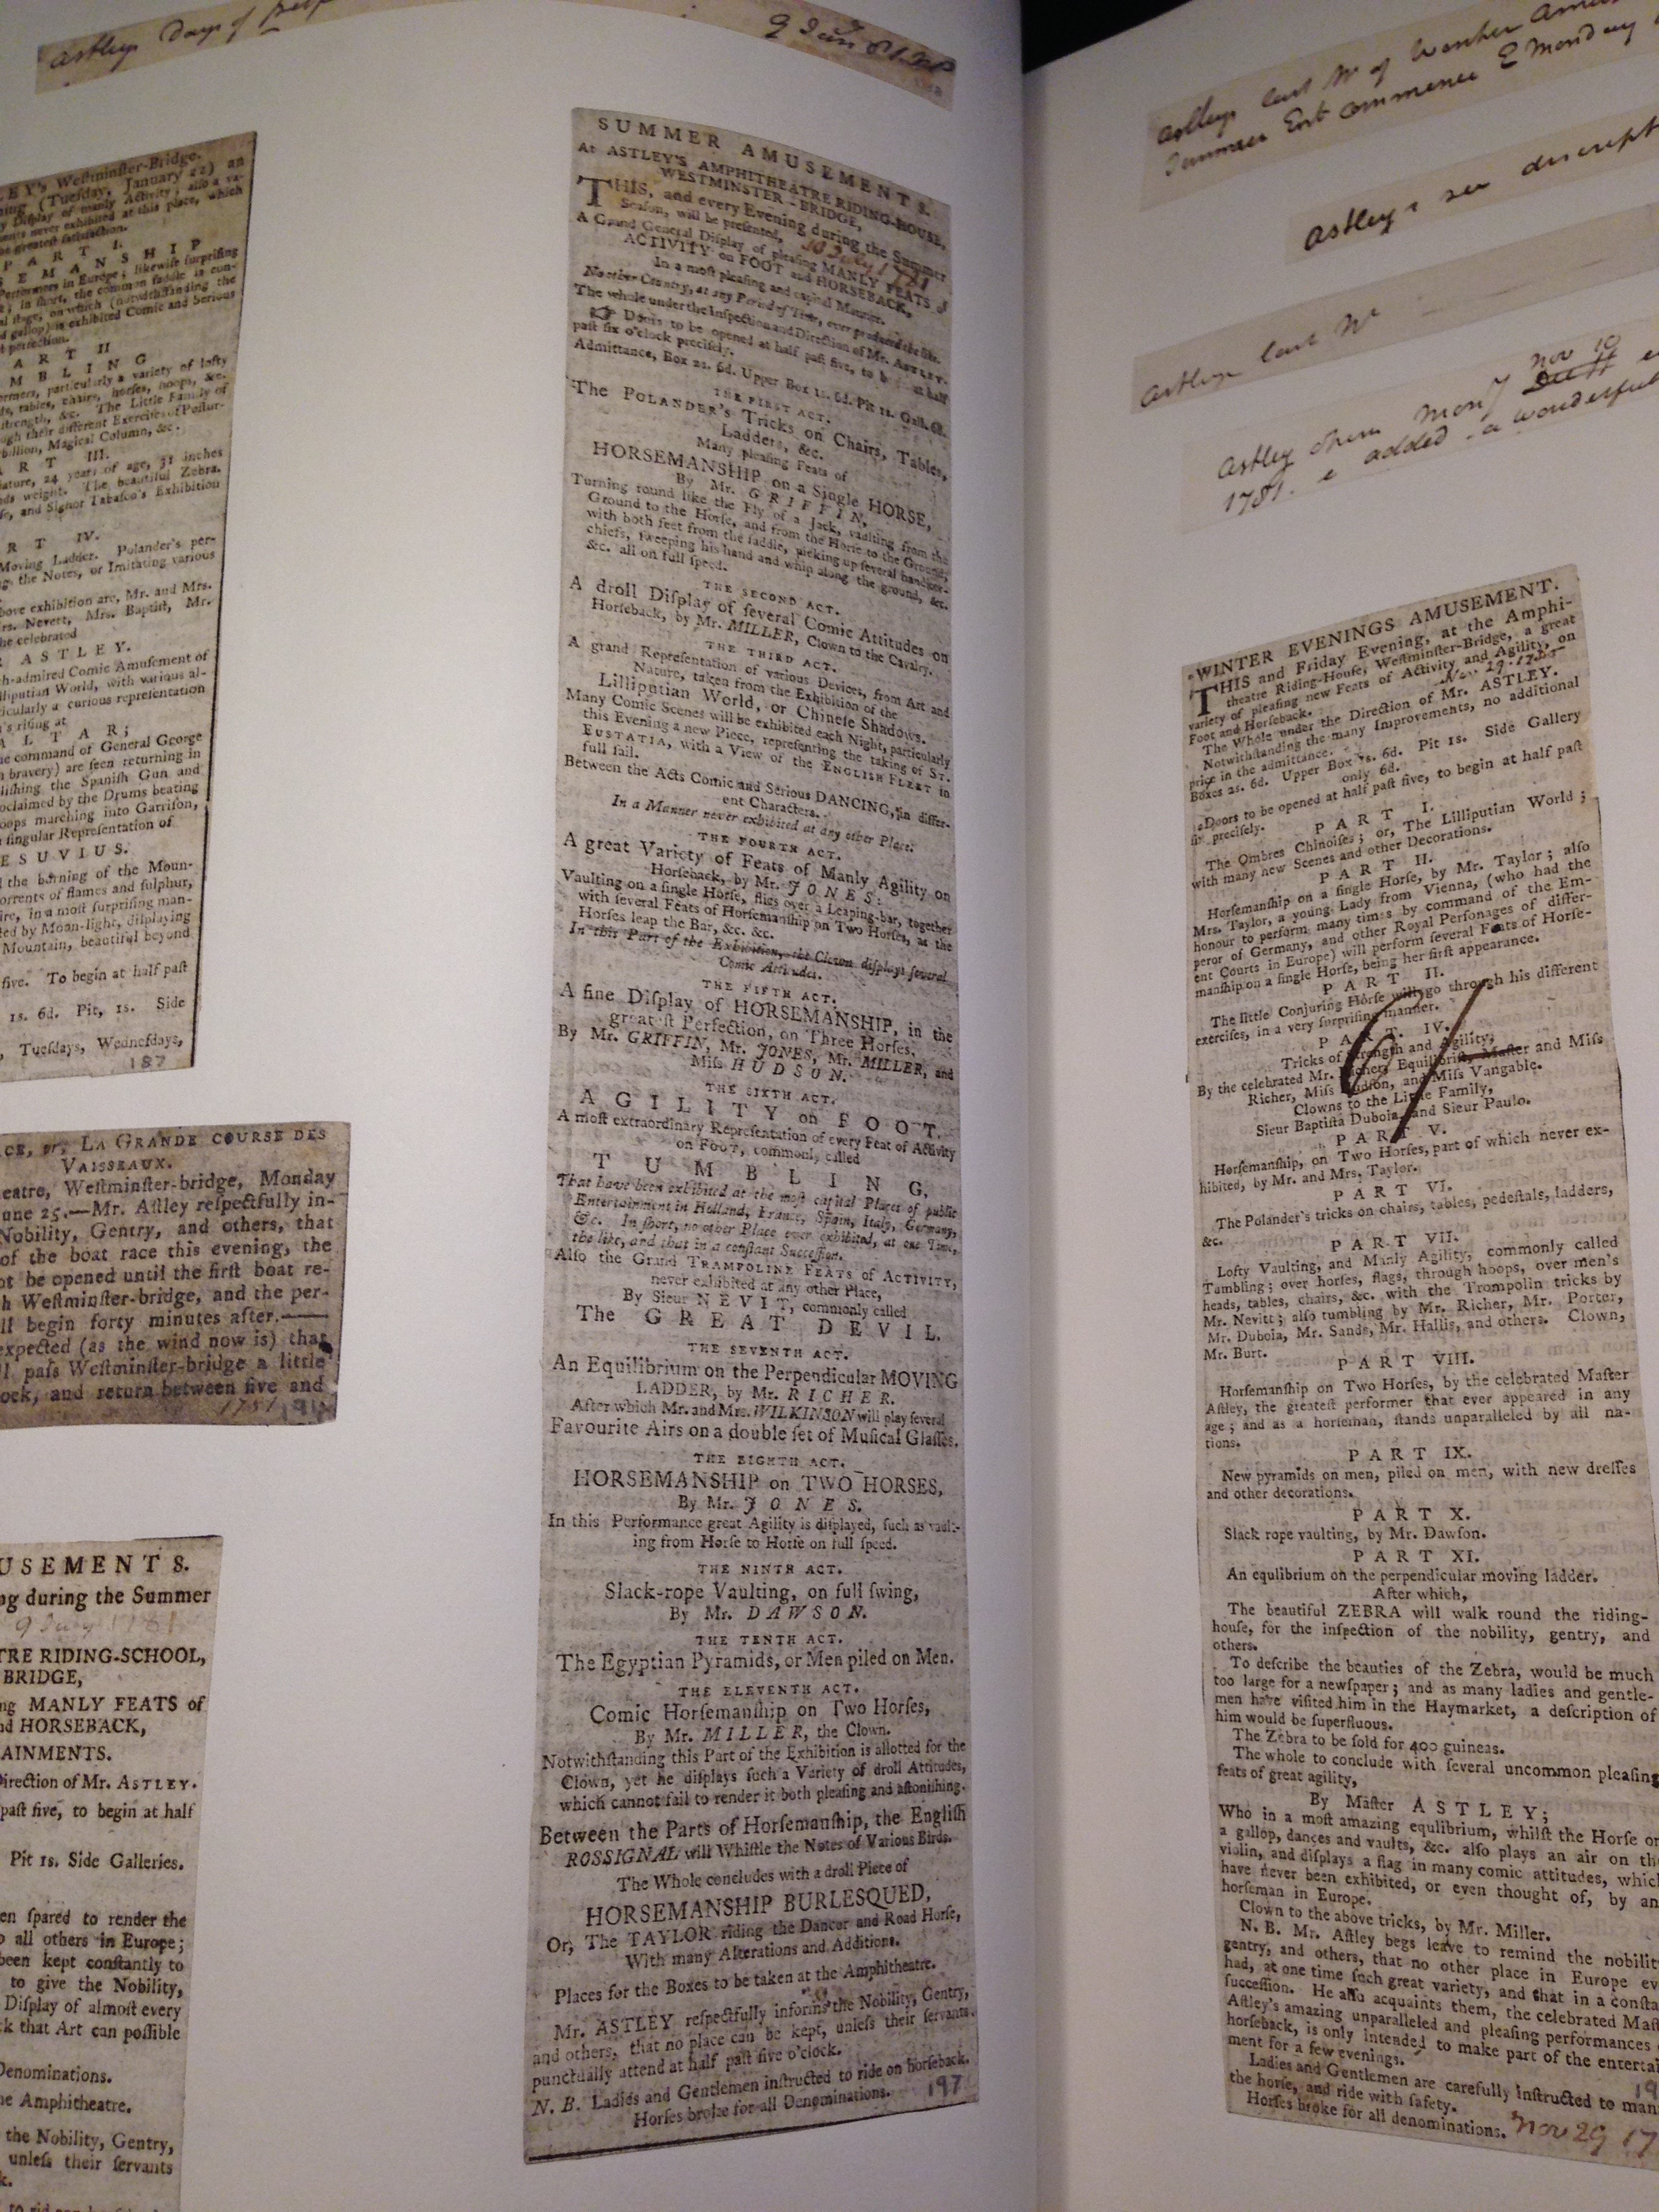 Astleys Day of
9 Jan 81
LEY's Weſtminſter-Bridge.
(Tueſday, January 22) an
Diſplay of manly Activity; alſo a va-
ments never exhibited at this place, which
the greateſt ſatisfaction.
PART I.
SEMANSHIP
Performers in Europe; likewiſe ſurpriſing
; in ſhort, the common ſaddle is con-
ſtage, on which (notwithſtanding the
gallop) is exhibited Comic and Serious
perfection.
ART II
MBLING
formers, particularly a variety of lofty
tables, chairs, horſes, hoops, &c.
ſtrength, &c. The Little Family of
through their different Exerciſes of Poſtur-
Magical Column, &c.
ART III.
nature, 24 years of age, 31 inches
weight. The beautiful Zebra.
and Signor Tabaſco's Exhibition
RT IV.
Moving Ladder. Polander's per-
the Notes, or Imitating various
above exhibition are, Mr. and Mrs.
Mrs. Nevert, Mrs. Baptiſt, Mr.
the celebrated
R ASTLEY.
much-admired Comic Amuſement of
Lilliputian World, with various al-
particularly a curious repreſentation
riſing at
ALTAR;
the command of General George
bravery) are ſeen returning in
the Spaniſh Gun and
proclaimed by the Drums beating
troops marching into Garriſon,
ſingular Repreſentation of
ESUVIUS.
the burning of the Moun-
torrents of flames and ſulphur,
fire, in a moſt ſurpriſing man-
by Moon-light, diſplaying
Mountain, beautiful beyond
five. To begin at half paſt
1s. 6d. Pit, 1s. Side
Tueſdays, Wedneſdays,
187
or, LA GRANDE COURSE DES
VAISSEAUX.
eatre, Weſtminſter-bridge, Monday
June 25.—Mr. Aſtley reſpectfully in-
Nobility, Gentry, and others, that
of the boat race this evening, the
not be opened until the firſt boat re-
Weſtminſter-bridge, and the per-
will begin forty minutes after.——
expected (as the wind now is) that
will paſs Weſtminſter-bridge a little
clock, and return between five and
1781
USEMENTS.
ng during the Summer
9 July 1781
TRE RIDING-SCHOOL,
BRIDGE,
ng MANLY FEATS of
nd HORSEBACK,
AINMENTS.
Direction of Mr. ASTLEY.
paſt five, to begin at half
Pit 1s. Side Galleries.
en ſpared to render the
all others in Europe;
been kept conſtantly to
to give the Nobility,
Diſplay of almoſt every
that Art can poſſible
Denominations.
he Amphitheatre.
the Nobility, Gentry,
unleſs their ſervants
SUMMER AMUSEMENTS.
At ASTLEY'S AMPHITHEATRE RIDING-HOUSE,
WESTMINSTER-BRIDGE,
THIS, and every Evening during the Summer
Seaſon, will be preſented, 10 July 1781
A Grand General Diſplay of pleaſing MANLY FEATS of
ACTIVITY on FOOT and HORSEBACK,
In a moſt pleaſing and capital Manner.
No other Country, at any Period of Time, ever produced the like.
The whole under the Inſpection and Direction of Mr. ASTLEY.
☞ Doors to be opened at half paſt five, to begin at half
paſt ſix o'clock preciſely.
Admittance, Box 2s. 6d. Upper Box 1s. 6d. Pit 1s. Gall. 6d.
THE FIRST ACT.
The POLANDER's Tricks on Chairs, Tables,
Ladders, &c.
Many pleaſing Feats of
HORSEMANSHIP on a Single HORSE,
By Mr. GRIFFIN,
Turning round like the Fly of a Jack, vaulting from the
Ground to the Horſe, and from the Horſe to the Ground,
with both feet from the ſaddle, picking up ſeveral handker-
chiefs, ſweeping his hand and whip along the ground, &c.
&c. all on full ſpeed.
THE SECOND ACT.
A droll Diſplay of ſeveral Comic Attitudes on
Horſeback, by Mr. MILLER, Clown to the Cavalry.
THE THIRD ACT.
A grand Repreſentation of various Devices, from Art and
Nature, taken from the Exhibition of the
Lilliputian World, or Chineſe Shadows.
Many Comic Scenes will be exhibited each Night, particularly
this Evening a new Piece, repreſenting the taking of ST.
EUSTATIA, with a View of the ENGLISH FLEET in
full ſail.
Between the Acts Comic and Serious DANCING, in differ-
ent Characters.
In a Manner never exhibited at any other Place.
THE FOURTH ACT.
A great Variety of Feats of Manly Agility on
Horſeback, by Mr. JONES:
Vaulting on a ſingle Horſe, flies over a Leaping-bar, together
with ſeveral Feats of Horſemanſhip on Two Horſes, as the
Horſes leap the Bar, &c. &c.
In this Part of the Exhibition, the Clown diſplays ſeveral
Comic Attitudes.
THE FIFTH ACT.
A fine Diſplay of HORSEMANSHIP, in the
greateſt Perfection, on Three Horſes,
By Mr. GRIFFIN, Mr. JONES, Mr. MILLER, and
Miſs HUDSON.
THE SIXTH ACT.
AGILITY on FOOT.
A moſt extraordinary Repreſentation of every Feat of Activity
on FOOT, commonly called
TUMBLING,
That have been exhibited at the moſt capital Places of public
Entertainment in Holland, France, Spain, Italy, Germany,
&c. In ſhort, no other Place ever exhibited, at one Time,
the like, and that in a conſtant Succeſſion.
Alſo the Grand TRAMPOLINE FEATS of ACTIVITY,
never exhibited at any other Place,
By Sieur NEVIT, commonly called
The GREAT DEVIL.
THE SEVENTH ACT.
An Equilibrium on the Perpendicular MOVING
LADDER, by Mr. RICHER.
After which Mr. and Mrs. WILKINSON will play ſeveral
Favourite Airs on a double ſet of Muſical Glaſſes.
THE EIGHTH ACT.
HORSEMANSHIP on TWO HORSES,
By Mr. JONES.
In this Performance great Agility is diſplayed, ſuch as vault-
ing from Horſe to Horſe on full ſpeed.
THE NINTH ACT.
Slack-rope Vaulting, on full ſwing,
By Mr. DAWSON.
THE TENTH ACT.
The Egyptian Pyramids, or Men piled on Men.
THE ELEVENTH ACT.
Comic Horſemanſhip on Two Horſes,
By Mr. MILLER, the Clown.
Notwithſtanding this Part of the Exhibition is allotted for the
Clown, yet he diſplays ſuch a Variety of droll Attitudes,
which cannot fail to render it both pleaſing and aſtoniſhing.
Between the Parts of Horſemanſhip, the Engliſh
ROSSIGNAL will Whiſtle the Notes of Various Birds.
The Whole concludes with a droll Piece of
HORSEMANSHIP BURLESQUED,
Or, The TAYLOR riding the Dancer and Road Horſe,
With many Alterations and Additions.
Places for the Boxes to be taken at the Amphitheatre.
Mr. ASTLEY reſpectfully informs the Nobility, Gentry,
and others, that no place can be kept, unleſs their ſervants
punctually attend at half paſt five o'clock.
N. B. Ladies and Gentlemen inſtructed to ride on horſeback.
Horſes broke for all Denominations. 197
Astleys last Wk of Winter Amus
Summer Ent commence Monday
Astleys see descript
Astleys last Wk
Astley opens Mony Nov 19
1781. added a wonderful
WINTER EVENINGS AMUSEMENT.
THIS and Friday Evening, at the Amphi-
theatre Riding-Houſe, Weſtminſter-Bridge, a great
variety of pleaſing new Feats of Activity and Agility, on
Foot and Horſeback. Nov. 29.
The Whole under the Direction of Mr. ASTLEY.
Notwithſtanding the many Improvements, no additional
price in the admittance.
Boxes 2s. 6d. Upper Box 1s. 6d. Pit 1s. Side Gallery
only 6d.
Doors to be opened at half paſt five, to begin at half paſt
ſix preciſely.
PART I.
The Ombres Chinoiſes; or, The Lilliputian World;
with many new Scenes and other Decorations.
PART II.
Horſemanſhip on a ſingle Horſe, by Mr. Taylor; alſo
Mrs. Taylor, a young Lady from Vienna, (who had the
honour to perform many times by command of the Em-
peror of Germany, and other Royal Perſonages of differ-
ent Courts in Europe) will perform ſeveral Feats of Horſe-
manſhip on a ſingle Horſe, being her firſt appearance.
PART II.
The little Conjuring Horſe will go through his different
exerciſes, in a very ſurpriſing manner.
PART. IV.
Tricks of Strength and Agility,
By the celebrated Mr. Richer, Equilibriſt, Maſter and Miſs
Richer, Miſs Hudſon, and Miſs Vangable.
Clowns to the Little Family,
Sieur Baptiſta Duboia, and Sieur Paulo.
PART V.
Horſemanſhip, on Two Horſes, part of which never ex-
hibited, by Mr. and Mrs. Taylor.
PART VI.
The Polander's tricks on chairs, tables, pedeſtals, ladders,
&c.
PART VII.
Lofty Vaulting, and Manly Agility, commonly called
Tumbling; over horſes, flags, through hoops, over men's
heads, tables, chairs, &c. with the Trompolin tricks by
Mr. Nevitt; alſo tumbling by Mr. Richer, Mr. Porter,
Mr. Duboia, Mr. Sands, Mr. Hallis, and others. Clown,
Mr. Burt.
PART VIII.
Horſemanſhip on Two Horſes, by the celebrated Maſter
Aſtley, the greateſt performer that ever appeared in any
age; and as a horſeman, ſtands unparalleled by all na-
tions.
PART IX.
New pyramids on men, piled on men, with new dreſſes
and other decorations.
PART X.
Slack rope vaulting, by Mr. Dawſon.
PART XI.
An equlibrium on the perpendicular moving ladder.
After which,
The beautiful ZEBRA will walk round the riding-
houſe, for the inſpection of the nobility, gentry, and
others.
To deſcribe the beauties of the Zebra, would be much
too large for a newſpaper; and as many ladies and gentle-
men have viſited him in the Haymarket, a deſcription of
him would be ſuperfluous.
The Zebra to be ſold for 400 guineas.
The whole to conclude with ſeveral uncommon pleaſing
feats of great agility,
By Maſter ASTLEY;
Who in a moſt amazing equlibrium, whilſt the Horſe on
a gallop, dances and vaults, &c. alſo plays an air on the
violin, and diſplays a flag in many comic attitudes, which
have never been exhibited, or even thought of, by any
horſeman in Europe.
Clown to the above tricks, by Mr. Miller.
N. B. Mr. Aſtley begs leave to remind the nobility
gentry, and others, that no other place in Europe ev
had, at one time ſuch great variety, and that in a conſta
ſucceſſion. He alſo acquaints them, the celebrated Maſ
Aſtley's amazing unparalleled and pleaſing performances
horſeback, is only intended to make part of the enterta
ment for a few evenings.
Ladies and Gentlemen are carefully inſtructed to man
the horſe, and ride with ſafety.
Horſes broke for all denominations. Nov 29 17